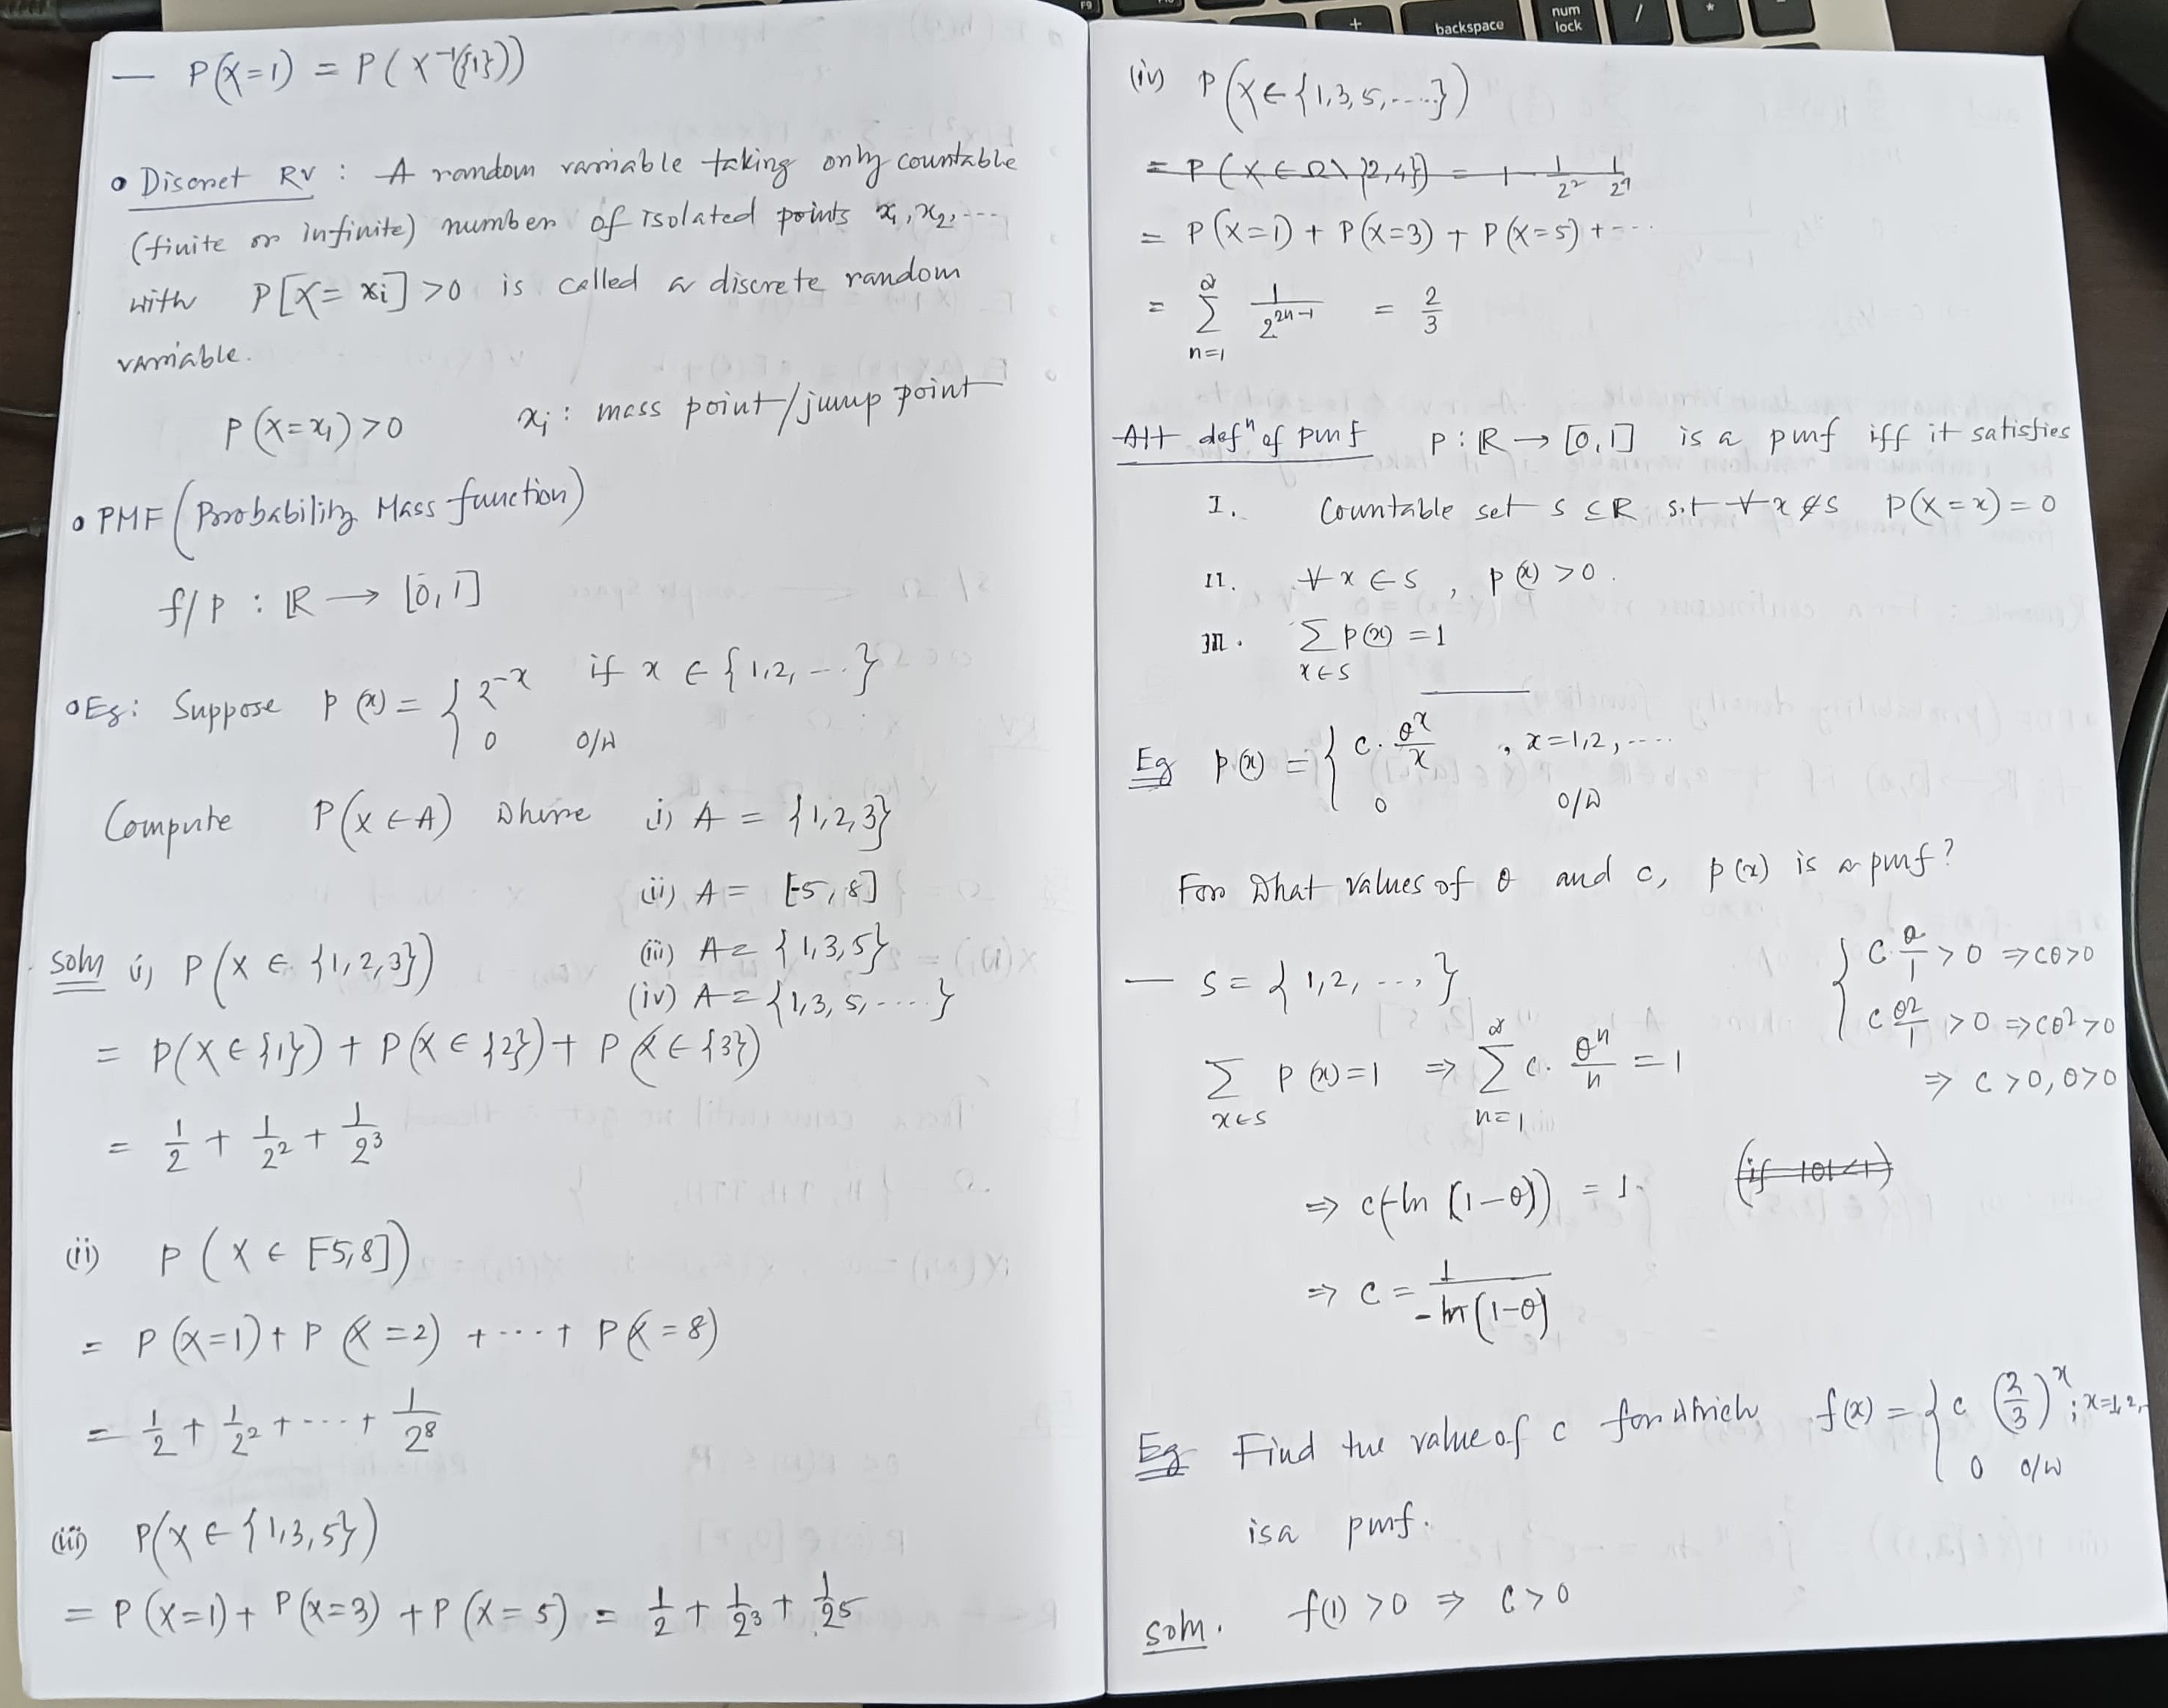 F9
+
backspace
num
lock
/
*
— P(X=1) = P(X⁻¹({1}))
o Discret RV : A random variable taking only countable
(finite or infinite) number of isolated points x₁, x₂, ...
with P[X = xi] >0 is called a discrete random
variable.
P(X=x₁) >0 xi : mass point/jump point
o PMF (Probability Mass function)
f/p : ℝ → [0,1]
o Eg: Suppose p(x) = { 2⁻ˣ if x ∈ {1,2, ...}
0 O/W
Compute P(X ∈ A) Where i) A = {1,2,3}
(ii) A = [-5,8]
(iii) A = {1,3,5}
(iv) A = {1,3,5,.....}
Soln i) P(X ∈ {1,2,3})
= P(X ∈ {1}) + P(X ∈ {2}) + P(X ∈ {3})
= 1/2 + 1/2² + 1/2³
(ii) P(X ∈ [-5,8])
= P(X=1) + P(X=2) + ... + P(X=8)
= 1/2 + 1/2² + .... + 1/2⁸
(iii) P(X ∈ {1,3,5})
= P(X=1) + P(X=3) + P(X=5) = 1/2 + 1/2³ + 1/2⁵
(iv) P(X ∈ {1,3,5,.....})
= P(X ∈ Ω\{2,4}) = 1 - 1/2² 1/2⁴
= P(X=1) + P(X=3) + P(X=5) + ....
= ∑ₙ₌₁^∞ 1/2²ⁿ⁻¹ = 2/3
Alt defⁿ of pmf p : ℝ → [0,1] is a pmf iff it satisfies
I. Countable set S ⊆ ℝ s.t ∀ x ∉ S P(X=x) = 0
II. ∀ x ∈ S , p(x) >0.
III. ∑ p(x) = 1
x ∈ S
Eg p(x) = { c. θˣ/x , x=1,2,....
0 O/W
For What values of θ and c, p(x) is a pmf?
— S = {1,2, ...,}
{ c θ/1 > 0 ⇒ cθ>0
c θ²/1 > 0 ⇒ cθ²>0
⇒ c >0, θ>0
∑ₓ∈S p(x)=1 ⇒ ∑ₙ₌₁^∞ c. θⁿ/n = 1
⇒ c(-ln (1-θ)) = 1. (if |θ|<1)
⇒ c = 1/-ln(1-θ)
Eg Find the value of c for which f(x) = { c (2/3)ˣ ; x=1,2,
0 O/W
is a pmf.
Soln. f(1) >0 ⇒ c>0